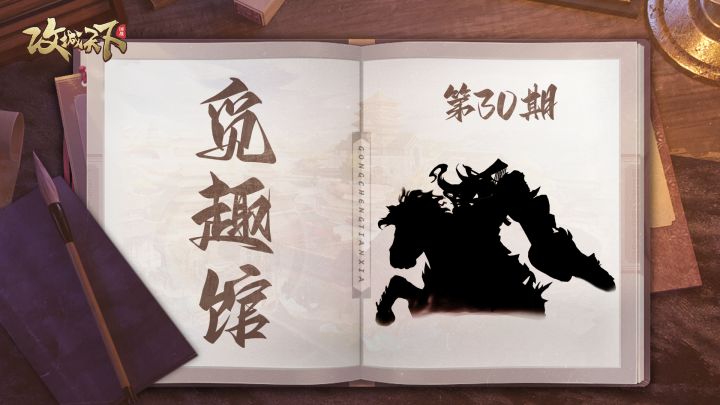 攻城天下
觅趣馆
GONGCHENGTIANXIA
第30期